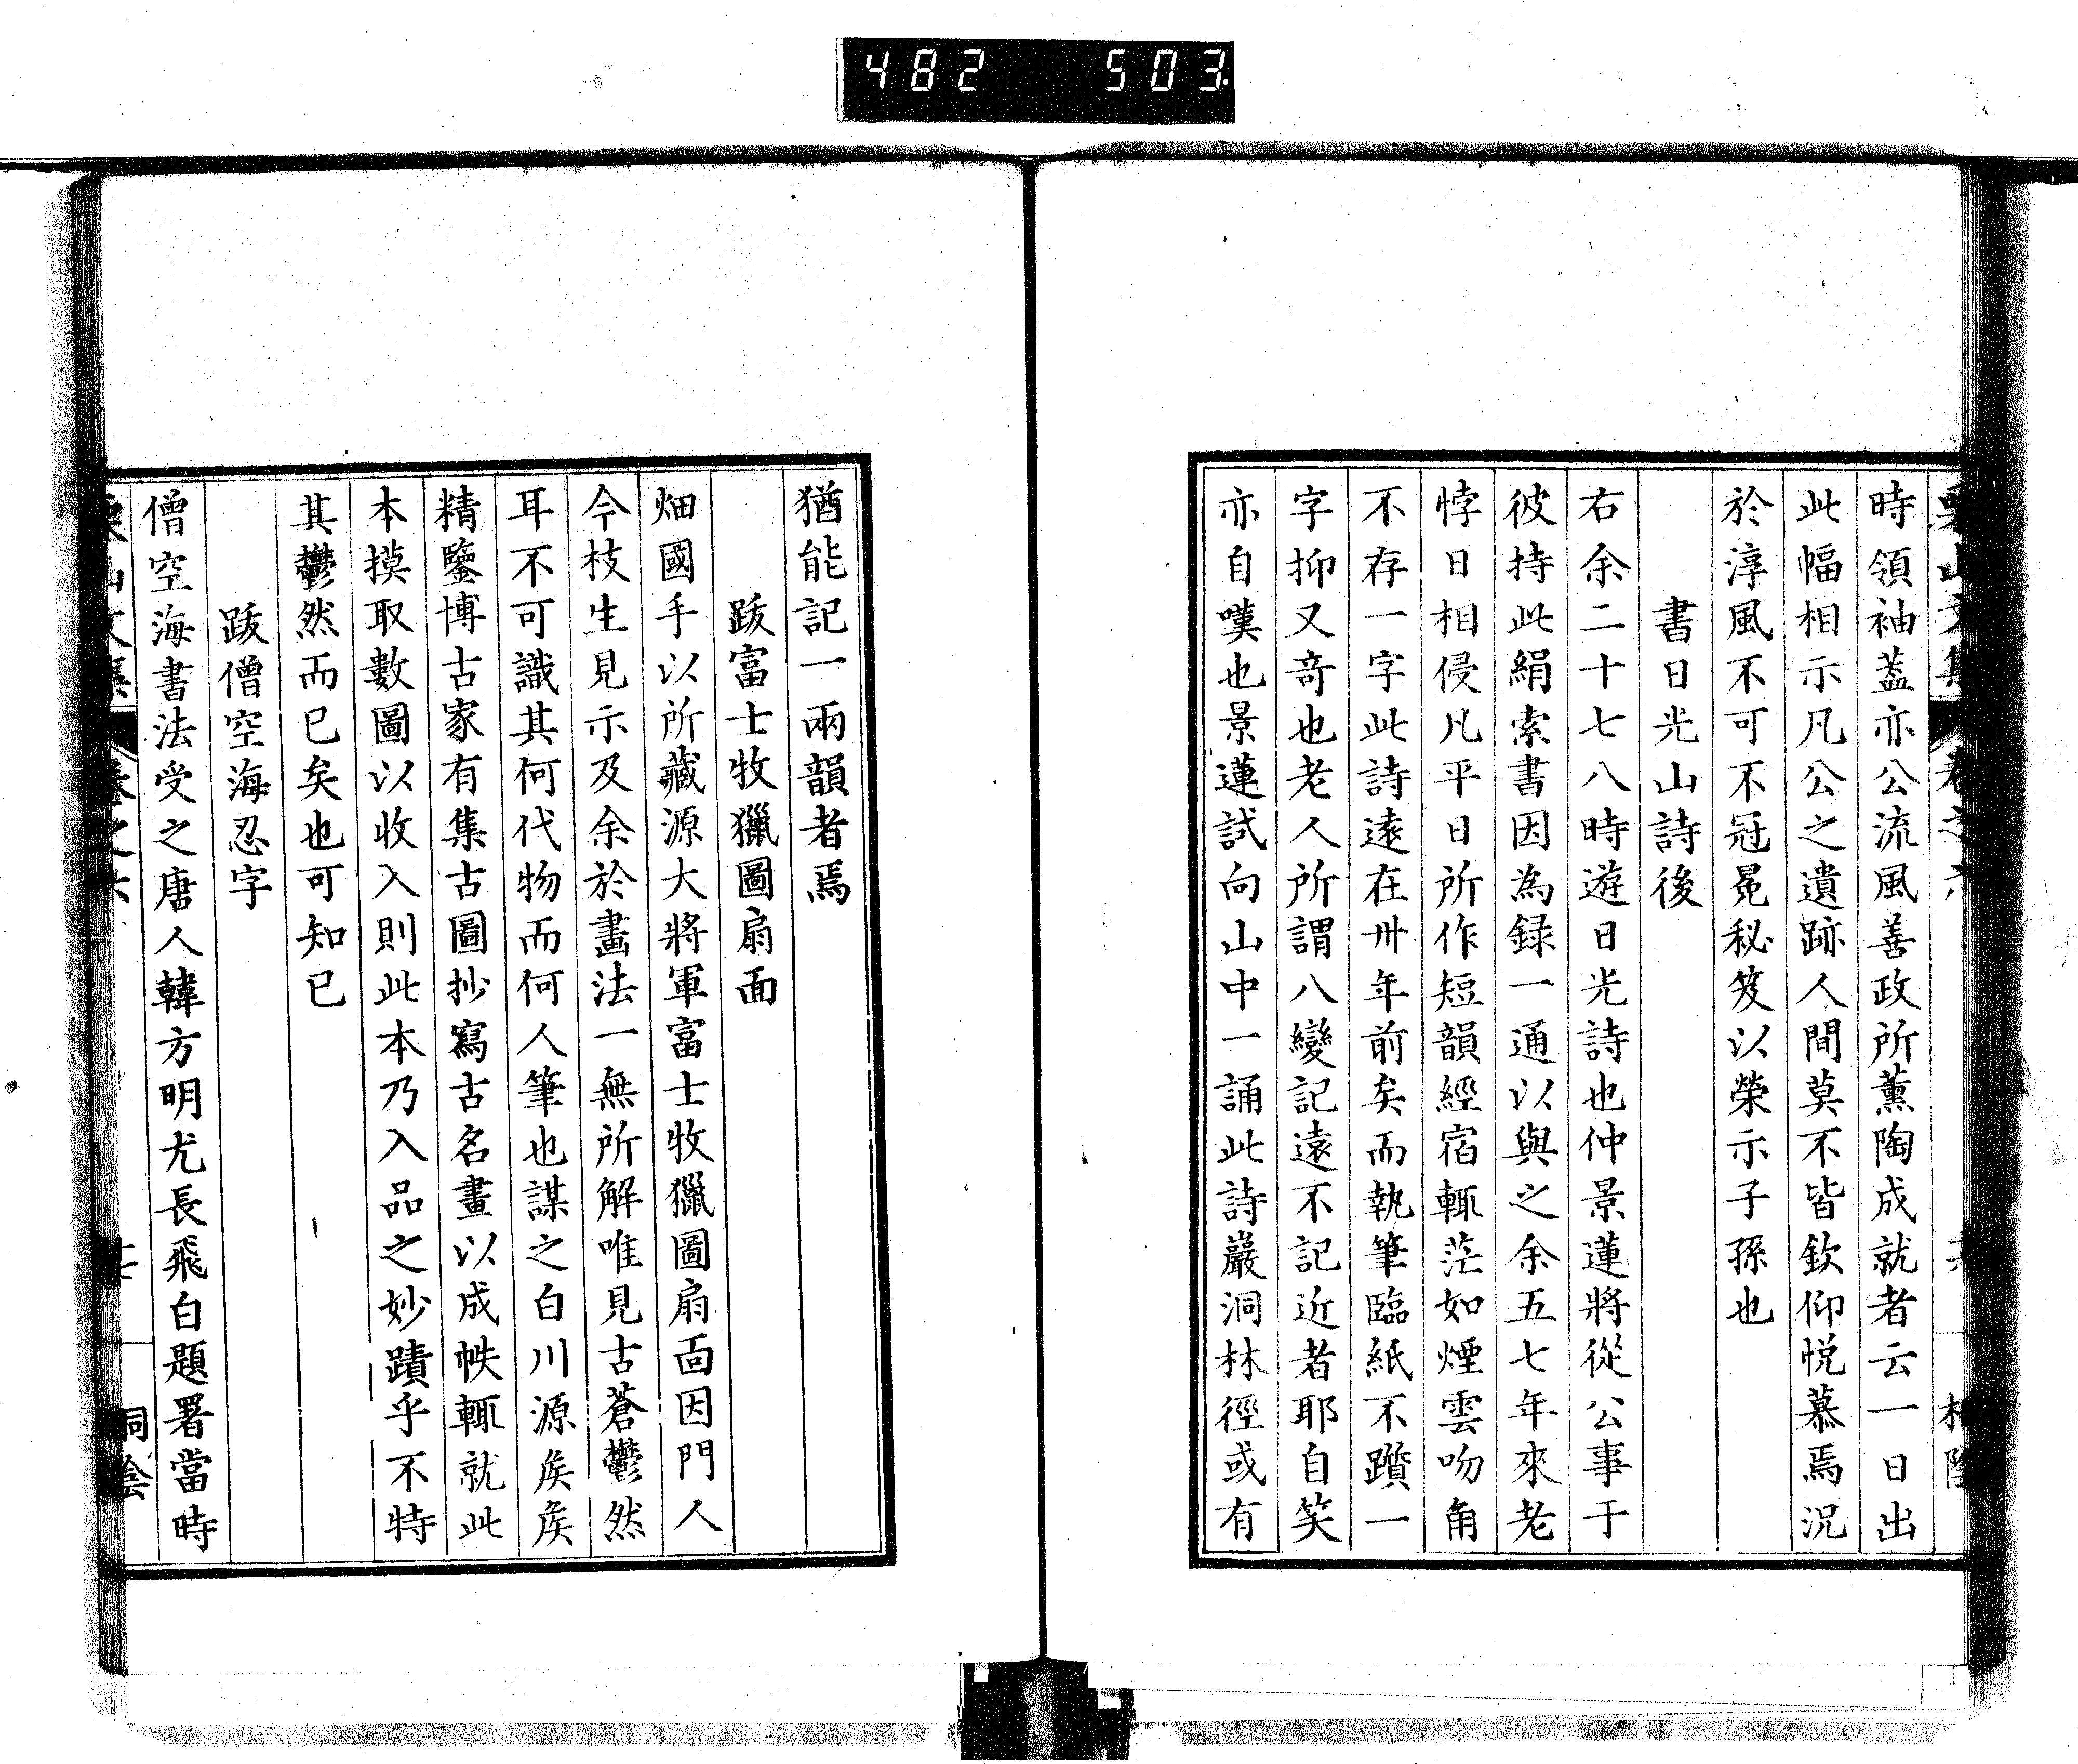 482 503
時領袖蓋亦公流風善政所薰陶成就者云一日出
此幅相示凡公之遺跡人間莫不皆欽仰悦慕焉況
於淳風不可不冠冕秘笈以榮示子孫也
書日光山詩後
右余二十七八時遊日光詩也仲景蓮將從公事于
彼持此絹索書因為録一通以與之余五七年來老
悖日相侵凡平日所作短韻經宿輒茫如煙雲吻角
不存一字此詩遠在卅年前矣而執筆臨紙不躓一
字抑又竒也老人所謂八變記遠不記近者耶自笑
亦自嘆也景蓮試向山中一誦此詩巖洞林徑或有
猶能記一兩韻者焉
跋富士牧獵圖扇面
畑國手以所藏源大將軍富士牧獵圖扇面因門人
今枝生見示及余於畫法一無所解唯見古蒼鬱然
耳不可識其何代物而何人筆也謀之白川源矦矦
精鑒博古家有集古圖抄寫古名畫以成帙輒就此
本摸取數圖以收入則此本乃入品之妙蹟乎不特
其鬱然而已矣也可知已
跋僧空海忍字
僧空海書法受之唐人韓方明尤長飛白題署當時